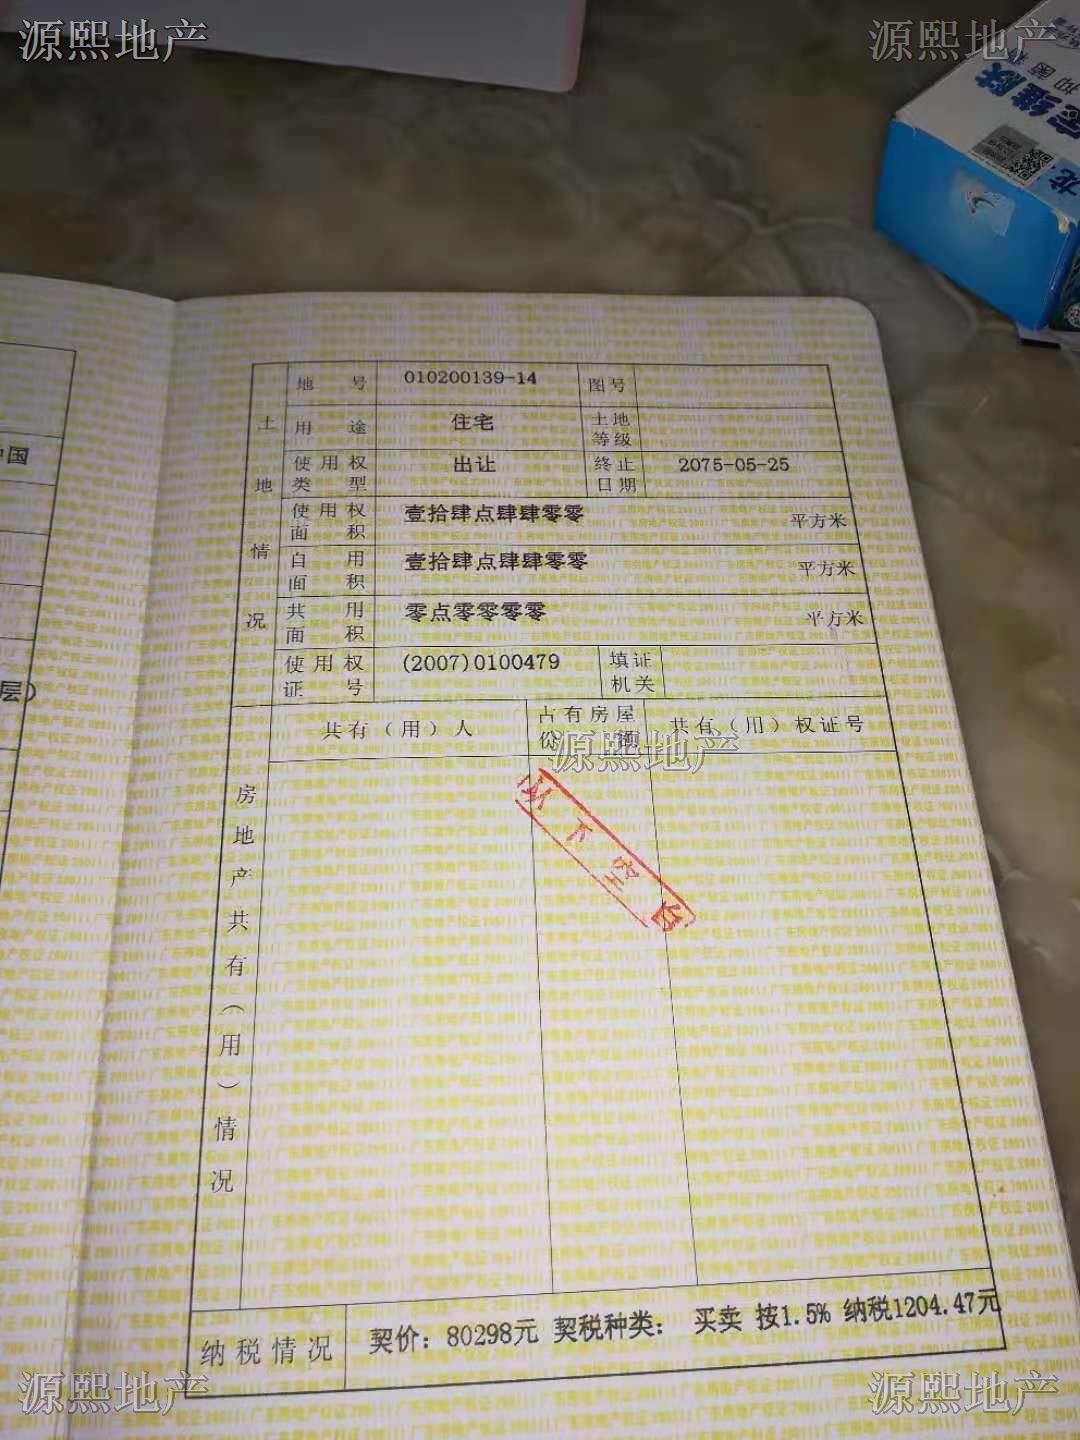 源熙地产
源熙地产
抑菌
龙
中国
层）
土地情况
地号 010200139-14 图号
用途 住宅 土地等级
使用权类型 出让 终止日期 2075-05-25
使用权面积 壹拾肆点肆肆零零 平方米
自用面积 壹拾肆点肆肆零零 平方米
共用面积 零点零零零零 平方米
使用权证号 (2007)0100479 填证机关
房地产共有（用）情况
共有（用）人 占有房屋份额 共有（用）权证号
源熙地产
以下空白
纳税情况 契价：80298元 契税种类： 买卖 按1.5% 纳税1204.47元
源熙地产
源熙地产